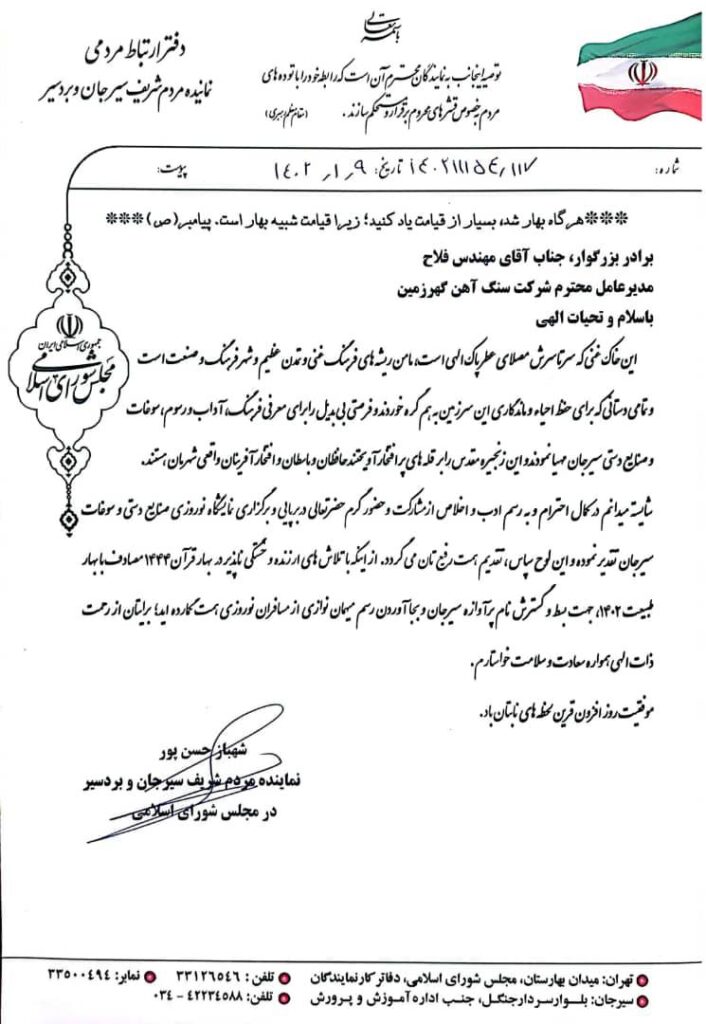 باسمه تعالی
دفتر ارتباط مردمی
نماینده مردم شریف سیرجان و بردسیر
توصیه اینجانب به نمایندگان محترم آن است که رابطه خود را با توده های
مردم به خصوص قشرهای محروم برقرار و مستحکم سازند. (مقام معظم رهبری)
شماره: ۱۴۰۲۱۱۱۵۴/۱۱۷ تاریخ: ۱۴۰۲/۱/۹ پیوست:
***هرگاه بهار شد، بسیار از قیامت یاد کنید؛ زیرا قیامت شبیه بهار است. پیامبر(ص)***
برادر بزرگوار، جناب آقای مهندس فلاح
مدیرعامل محترم شرکت سنگ آهن گهرزمین
باسلام و تحیات الهی
این خاک غنی که سرتاسرش مصلای عطر پاک الهی است، مامن ریشه های فرهنگ غنی و تمدن عظیم و شهر فرهنگ و صنعت است
و تمامی دستانی که برای حفظ احیاء و ماندگاری این سرزمین به هم گره خوردند و فرصتی بی بدیل را برای معرفی فرهنگ، آداب و رسوم، سوغات
و صنایع دستی سیرجان مهیا نمودند و این زنجیره مقدس را بر قله های پر افتخار آویختند حافظان و پاسبان و افتخار آفرینان واقعی شهرمان هستند.
شایسته میدانم در کمال احترام و به رسم ادب و اخلاص از مشارکت و حضور گرم حضرتعالی در برپایی و برگزاری نمایشگاه نوروزی صنایع دستی و سوغات
سیرجان تقدیر نموده و این لوح سپاس، تقدیم همت رفیع تان می گردد. از اینکه با تلاش های ارزنده و خستگی ناپذیر در بهار قرآن ۱۴۴۴ مصادف با بهار
طبیعت ۱۴۰۲، جهت بسط و گسترش نام پرآوازه سیرجان و بجا آوردن رسم میهمان نوازی از مسافران نوروزی همت گمارده اید؛ برایتان از رحمت
ذات الهی همواره سعادت و سلامت خواستارم.
موفقیت روز افزون قرین لحظه های نابتان باد.
جمهوری اسلامی ایران
مجلس شورای اسلامی
شهباز حسن پور
نماینده مردم شریف سیرجان و بردسیر
در مجلس شورای اسلامی
تهران: میدان بهارستان، مجلس شورای اسلامی، دفاتر کار نمایندگان تلفن: ۳۳۱۲۶۵۴۶ نمابر: ۳۳۵۰۰۴۹۴
سیرجان: بلوار سردار جنگل، جنب اداره آموزش و پرورش تلفن: ۴۲۲۳۴۵۸۸ - ۰۳۴